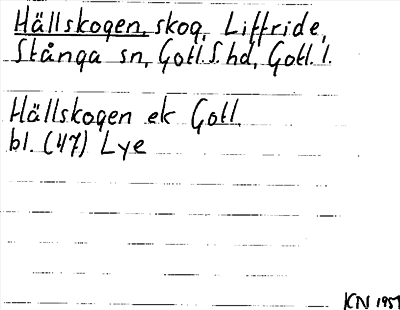 Hällskogen, skog, Liffride,
Stånga sn, Gotl. S. hd, Gotl. l.
Hällskogen ek Gotl.
bl. (47) Lye
KN 1951